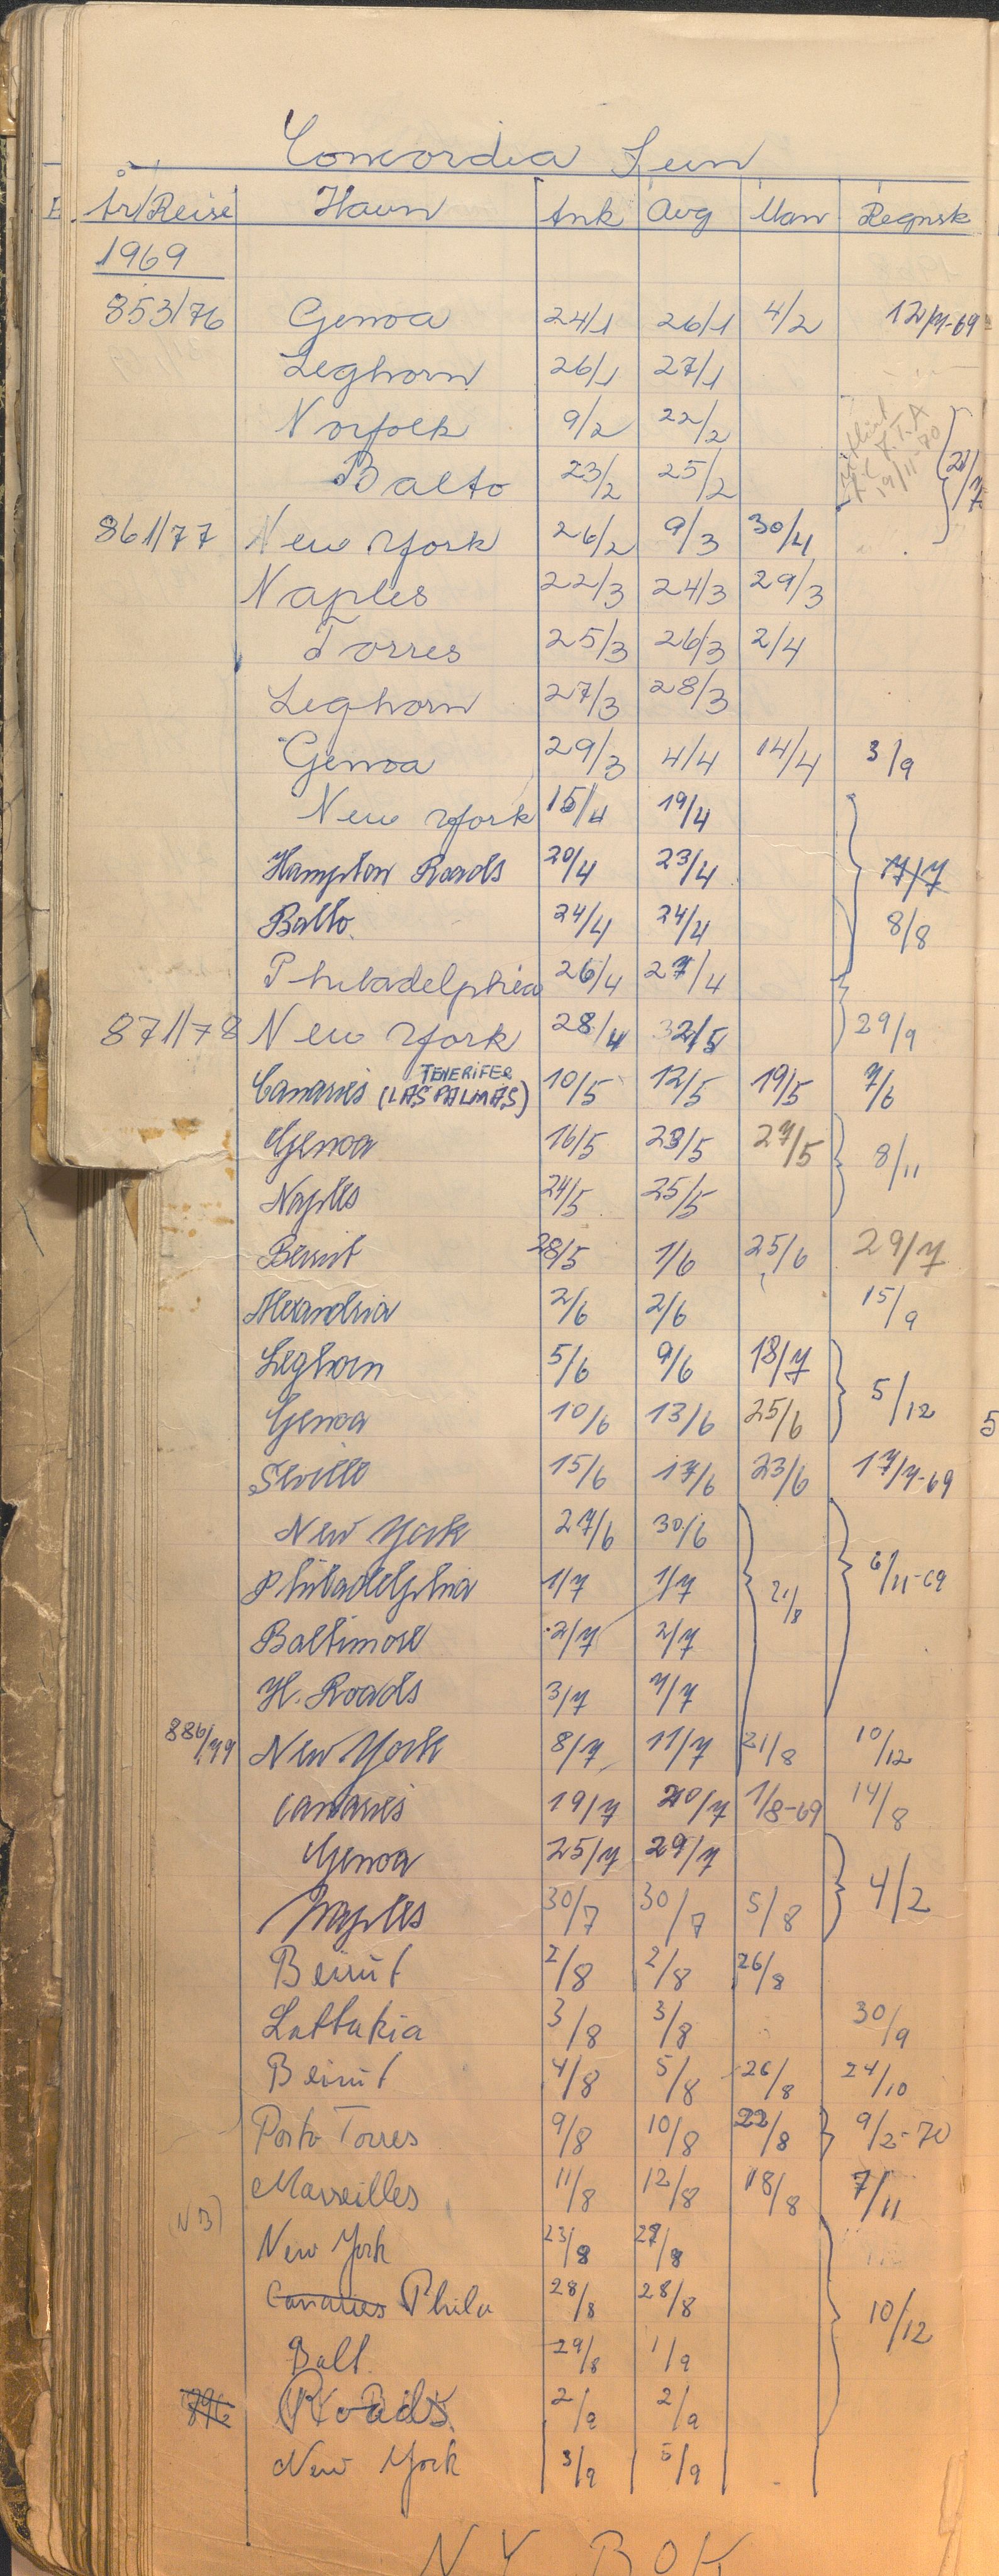 Concordia
År/Reise Havn Ank Avg Man Regnsk
1969
853/76 Genoa 24/1 26/1 4/2 12/7-69
Leghorn 26/1 27/1
Norfolk 9/2 22/2
Balto 23/2 25/2 21/7
19/11-70
861/77 New York 26/2 9/3 30/4
Naples 22/3 24/3 29/3
Torres 25/3 26/3 2/4
Leghorn 27/3 28/3
Genoa 29/3 4/4 14/4 3/9
New York 15/4 19/4
Hampton Roads 20/4 23/4 17/7
Balto. 24/4 24/4 8/8
Philadelphia 26/4 27/4
871/78 New York 28/4 2/5 29/9
TENERIFER
Canaries (LAS PALMAS) 10/5 12/5 19/5 7/6
Genoa 16/5 23/5 27/5 8/11
Naples 24/5 25/5
Beirut 28/5 1/6 25/6 29/7
Alexandria 2/6 2/6 15/9
Leghorn 5/6 9/6 18/7 5/12
Genoa 10/6 13/6 25/6
Seville 15/6 17/6 23/6 17/7-69
New York 27/6 30/6
Philadelphia 1/7 1/7 21/8 6/11-69
Baltimore 2/7 2/7
H. Roads 3/7 7/7
886/79 New York 8/7 11/7 21/8 10/12
Canaries 19/7 20/7 1/8-69 14/8
Genoa 25/7 29/7 4/2
Naples 30/7 30/7 5/8
Beirut 2/8 2/8 26/8
Lattakia 3/8 3/8 30/9
Beirut 4/8 5/8 26/8 24/10
Porto Torres 9/8 10/8 22/8 9/2-70
Marseilles 11/8 12/8 18/8 7/11
(NB)
New York 23/8 27/8
Canaries Phila 28/8 28/8 10/12
Balt. 29/8 1/9
796 Roads 2/9 2/9
New York 3/9 5/9
NY BOK